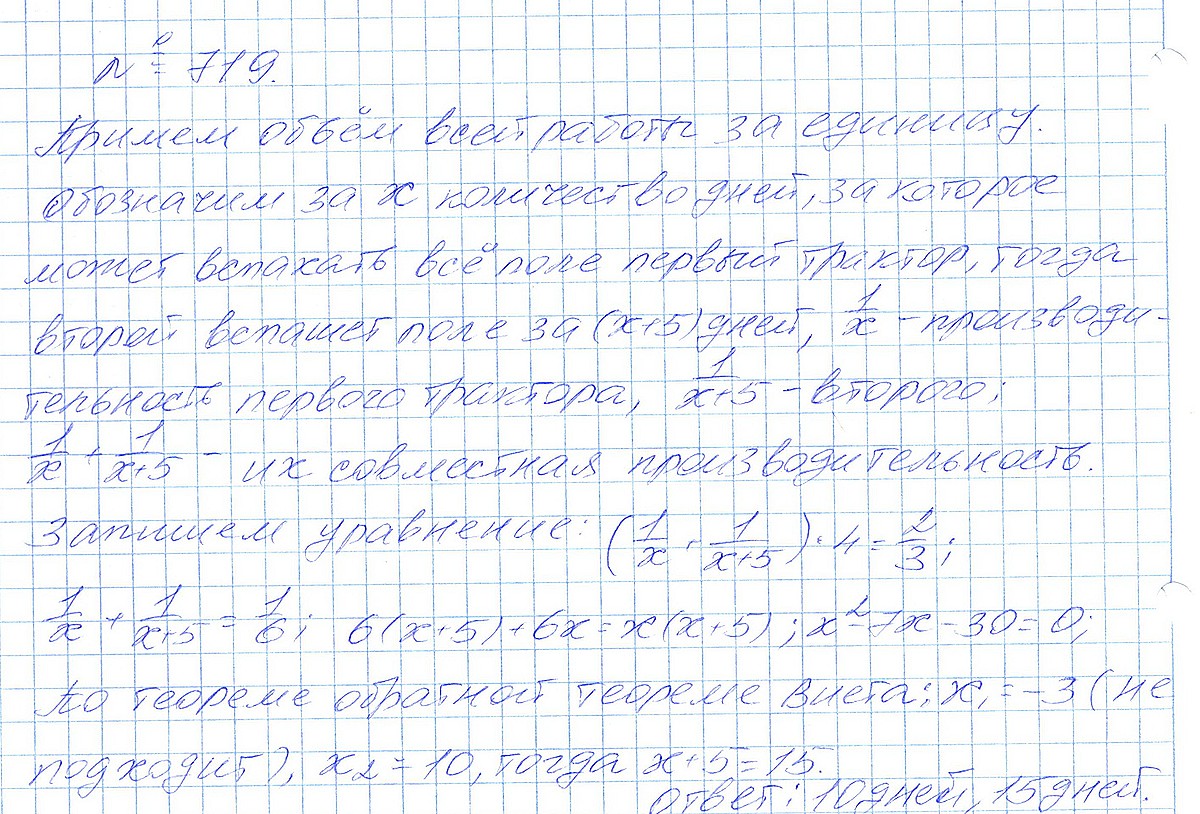 № 719.
Примем объём всей работы за единицу.
Обозначим за x количество дней, за которое
может вспахать всё поле первый трактор, тогда
второй вспашет поле за (x+5) дней, 1/x - производи-
тельность первого трактора, 1/(x+5) - второго;
1/x + 1/(x+5) - их совместная производительность.
Запишем уравнение: (1/x + 1/(x+5)) · 4 = 2/3;
1/x + 1/(x+5) = 1/6; 6(x+5)+6x=x(x+5); x²-7x-30=0;
По теореме обратной теореме Виета: x₁ = -3 (не
подходит), x₂ = 10, тогда x+5=15.
Ответ: 10 дней, 15 дней.